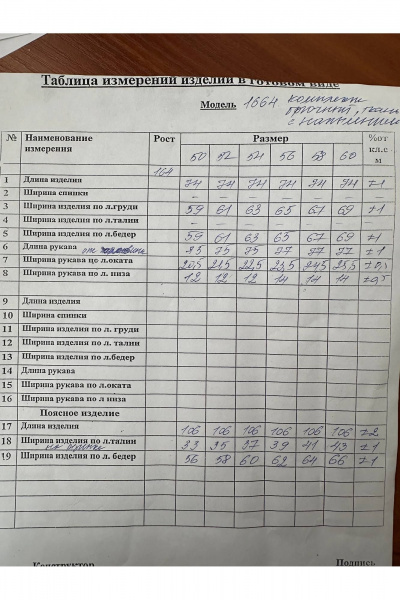 Таблица измерений изделий в готовом виде
Модель 1664 комплект
брючный, ткань
с напылением
№ Наименование измерения Рост Размер %от кл.с м
164 50 52 54 56 58 60
1 Длина изделия 74 74 74 74 74 74 ±1
2 Ширина спинки – – – – – –
3 Ширина изделия по л.груди 59 61 63 65 67 69 ±1
4 Ширина изделия по л.талии – – – – – –
5 Ширина изделия по л.бедер 59 61 63 65 67 69 ±1
6 Длина рукава от горловины 75 75 77 77 77 ±1
7 Ширина рукава по л.оката 20,5 21,5 22,5 23,5 24,5 25,5 ±0,5
8 Ширина рукава по л. низа 12 12 12 14 14 14 ±0,5
9 Длина изделия
10 Ширина спинки
11 Ширина изделия по л. груди
12 Ширина изделия по л. талии
13 Ширина изделия по л.бедер
14 Длина рукава
15 Ширина рукава по л.оката
16 Ширина рукава по л низа
Поясное изделие
17 Длина изделия 106 106 106 106 106 106 ±2
18 Ширина изделия по л.талии 33 35 37 39 41 43 ±1
на резинке
19 Ширина изделия по л. бедер 56 58 60 62 64 66 ±1
Конструктор Подпись